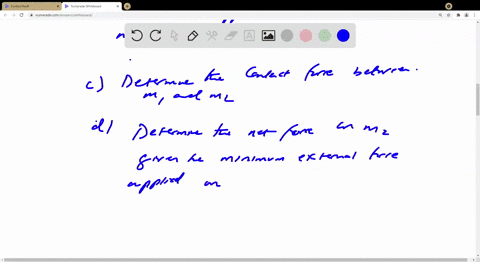 c) Determine the Contact force between
m, and m2
d) Determine the net force on m2
given he minimum external force
applied on